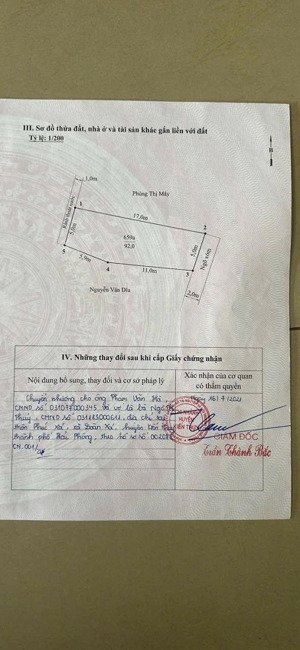 III. Sơ đồ thửa đất, nhà ở và tài sản khác gắn liền với đất
Tỷ lệ: 1/200
B
1,0m
Phùng Thị Mây
1
17,0m
2
5,0m
659a
92,0
5,0m
Ngõ xóm
5
3,0m
4
11,0m
3
2,0m
Nguyễn Văn Dĩa
IV. Những thay đổi sau khi cấp Giấy chứng nhận
Nội dung bổ sung, thay đổi và cơ sở pháp lý
Xác nhận của cơ quan
có thẩm quyền
Chuyển nhượng cho ông Phạm Văn Hà,
CMND số 031077000345 và vợ là bà Ngô
Thuý, CMND số 031183000612, địa chỉ tại
thôn Phúc Xá, xã Đoàn Xá, huyện Kiến Thuỵ
thành phố Hải Phòng, theo hồ sơ số
CN.001
Ngày 16/7/2021
GIÁM ĐỐC
Trần Thành Bắc